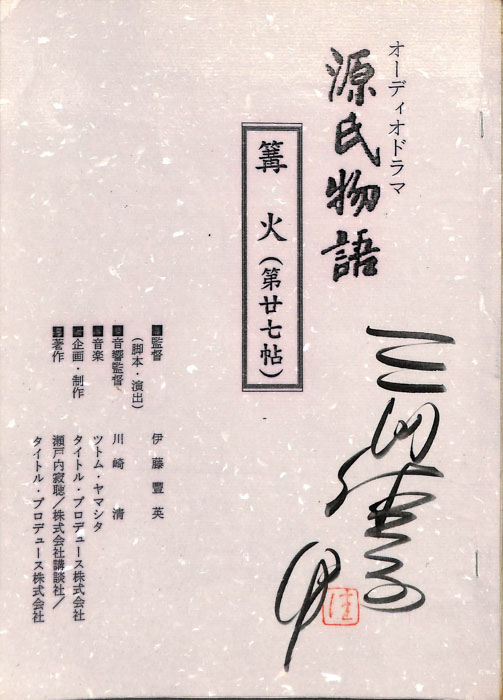 オーディオドラマ
源氏物語
篝火（第廿七帖）
■監督　伊藤豐英
（脚本・演出）
■音響監督　川崎清
■音楽　ツトム・ヤマシタ
■企画・制作　タイトル・プロデュース株式会社
■著作　瀬戸内寂聴／株式会社講談社／
タイトル・プロデュース株式会社